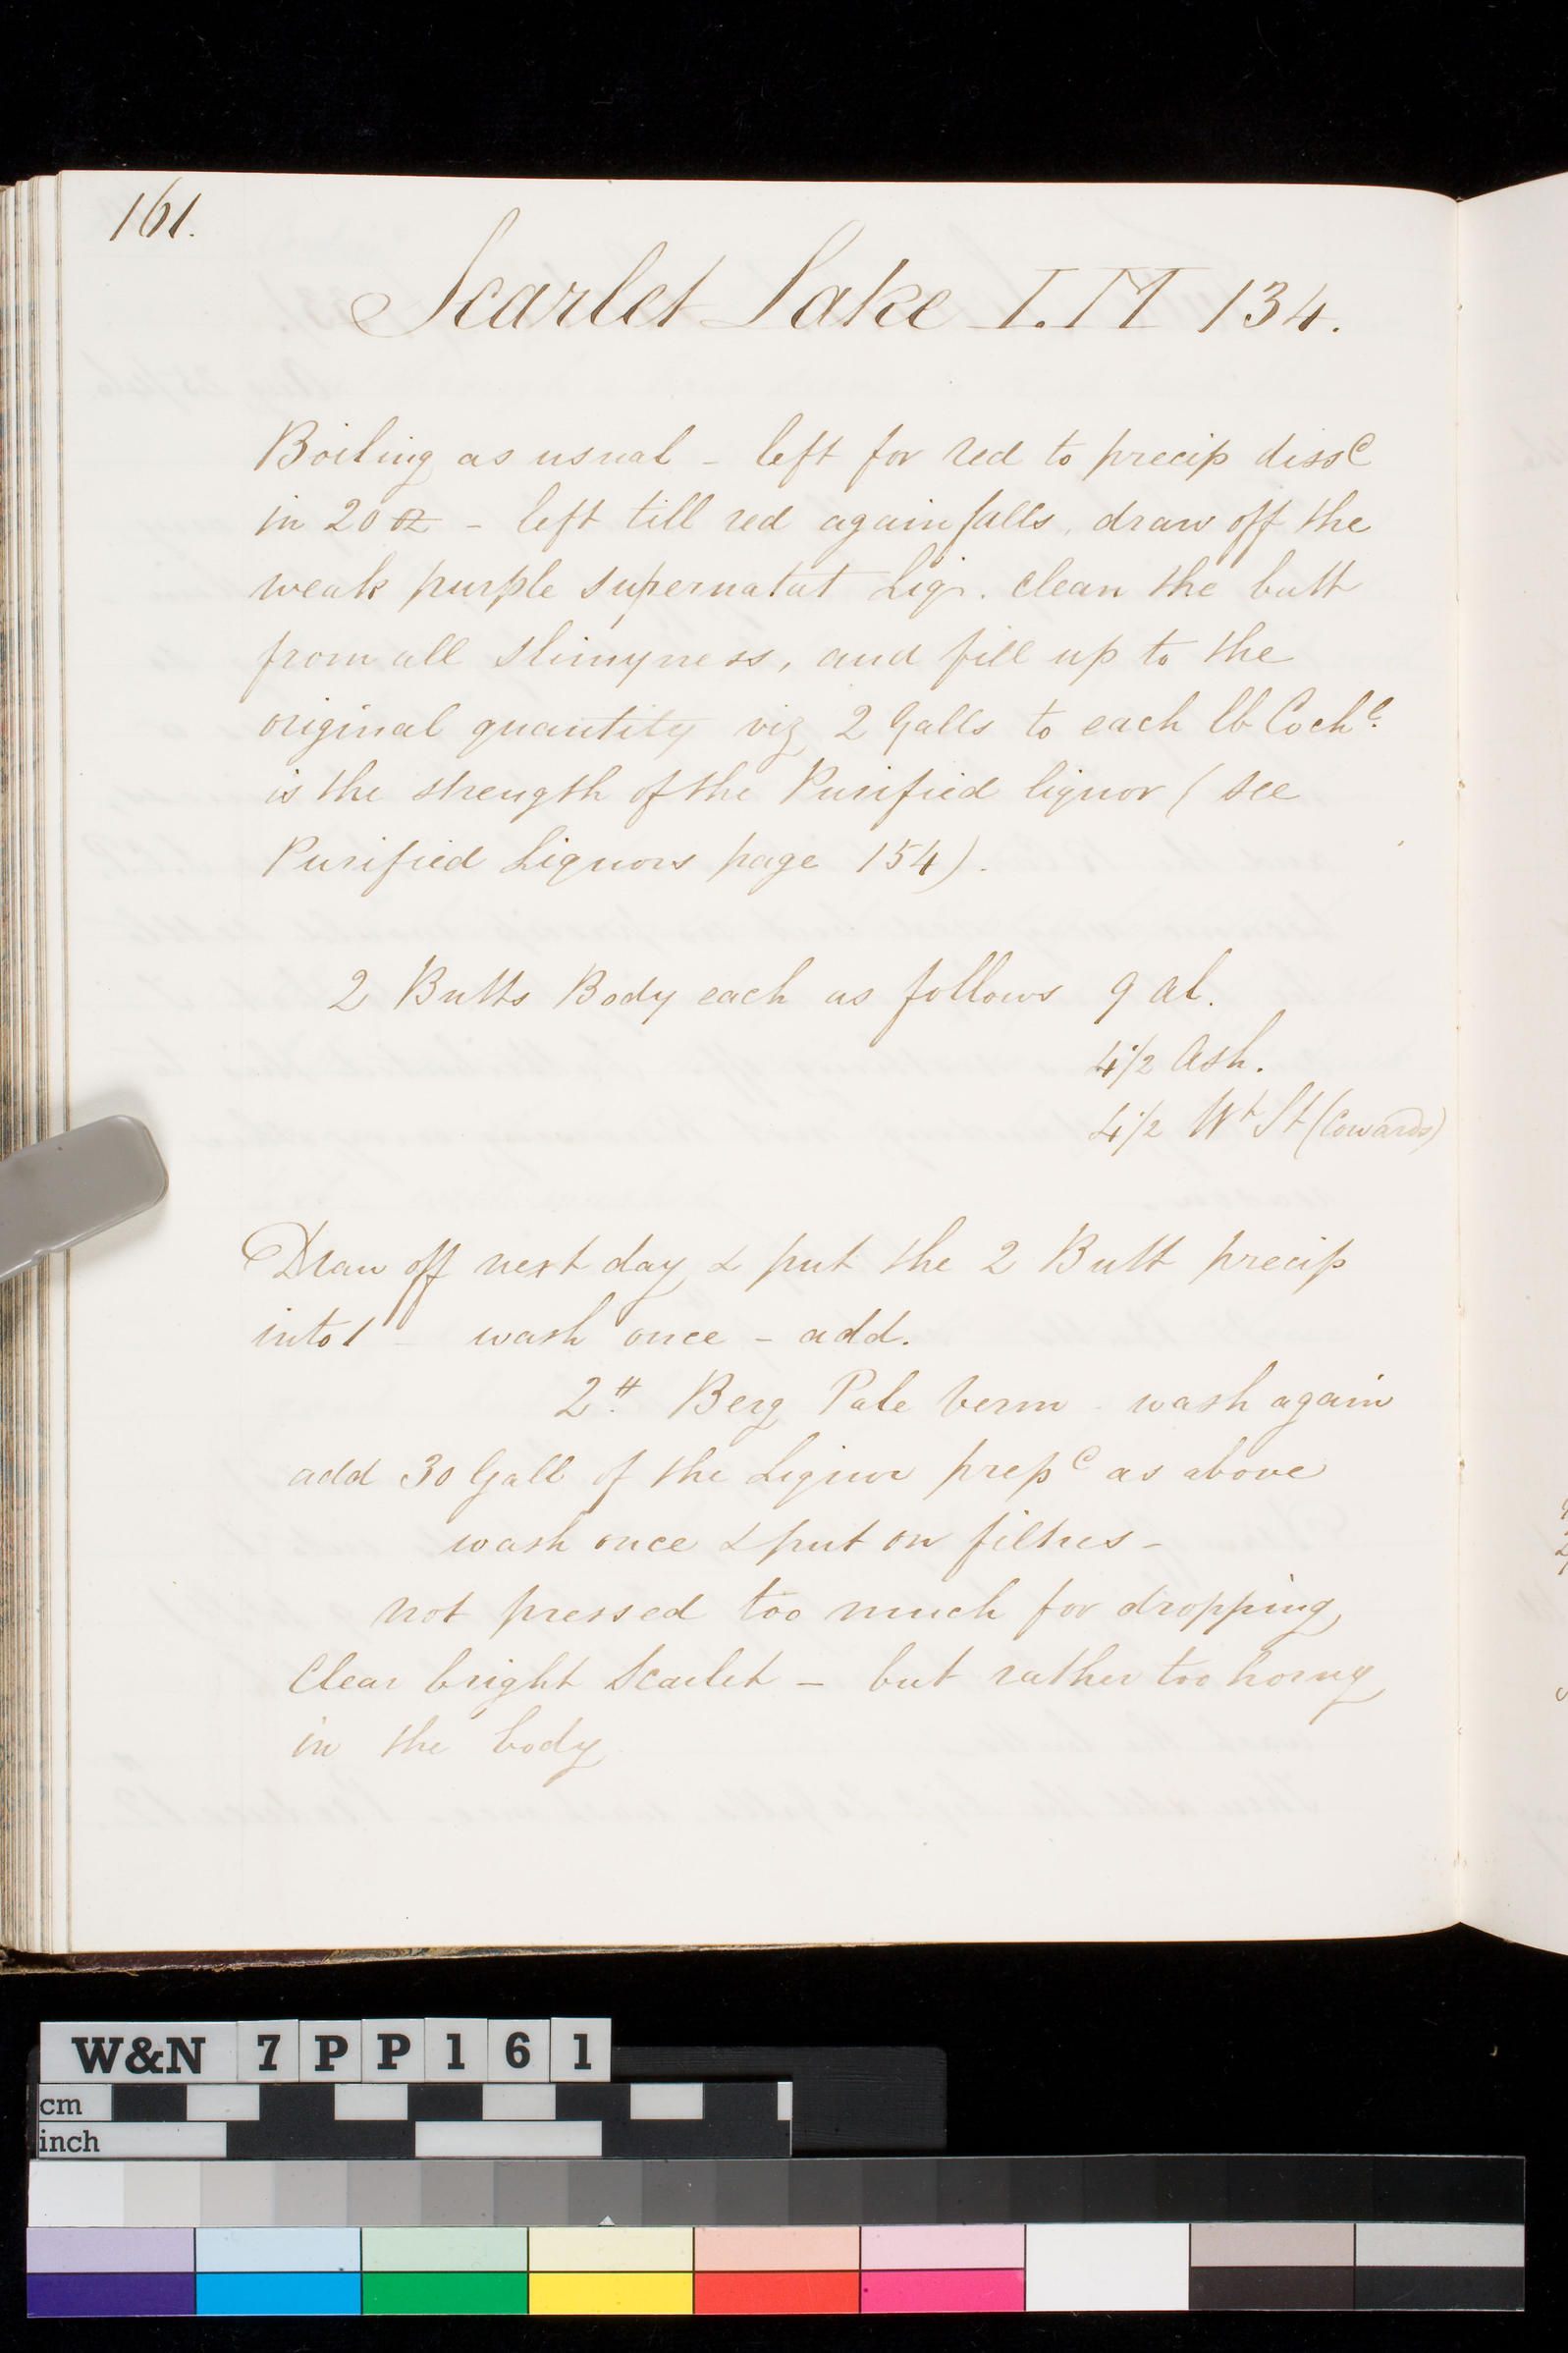 161.
Scarlet Lake I.M 134.
Boiling as usual - left for red to precip dissd
in 20 oz - left till red again falls, draw off the
weak purple supernatat Liqr. clean the butt
from all slimyness, and fill up to the
original quantity viz 2 Galls to each lb Cochl.
is the strength of the Purified liquor (see
Purified Liquors page 154).
2 Butts Body each as follows 9 al.
4 1/2 Ash.
4 1/2 Wt St (Cowards)
Draw off next day & put the 2 Butt precip
into 1 - wash once - add.
2 # Berg Pale Verm - wash again
add 30 Gall of the Liquor prepd as above
wash once & put on filtres -
not pressed too much for dropping
Clear bright Scarlet - but rather too horny
in the body
W&N 7PP161
cm
inch